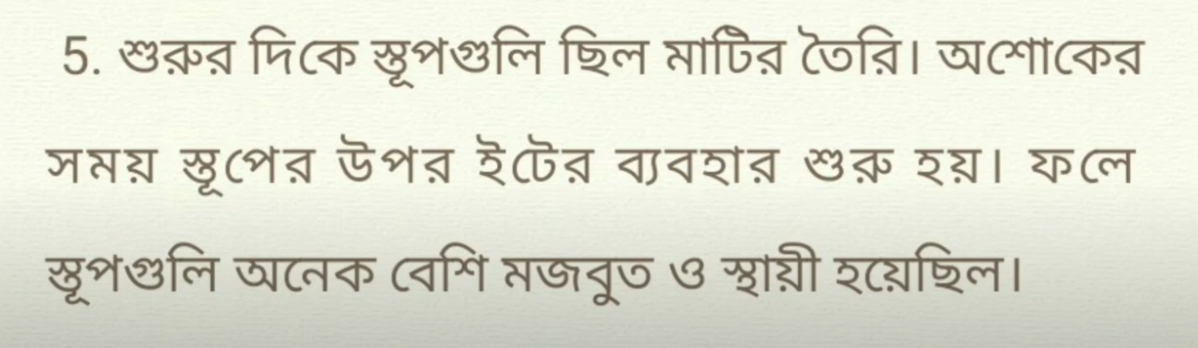 5. শুরুর দিকে স্তূপগুলি ছিল মাটির তৈরি। অশোকের
সময় স্তূপের উপর ইটের ব্যবহার শুরু হয়। ফলে
স্তূপগুলি অনেক বেশি মজবুত ও স্থায়ী হয়েছিল।